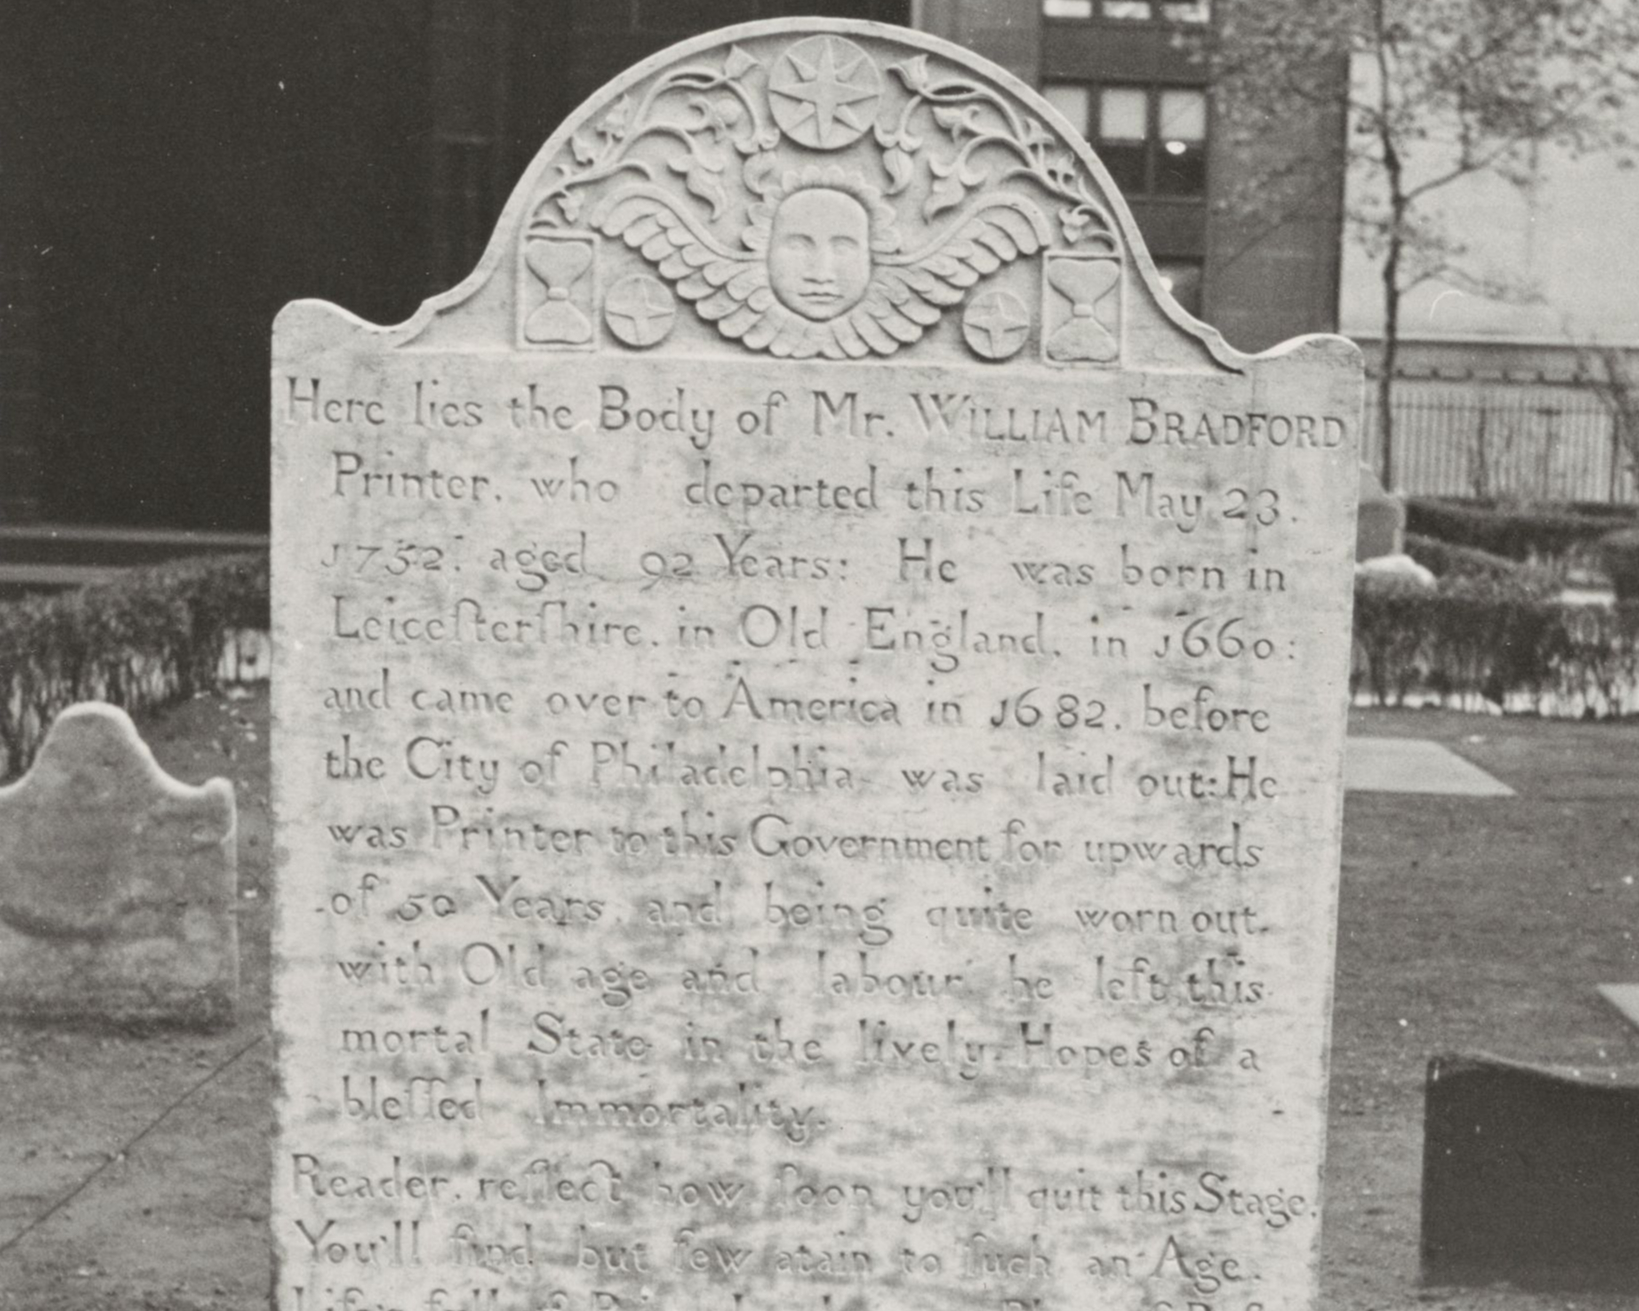 Here lies the Body of Mr. WILLIAM BRADFORD
Printer, who departed this Life May 23.
1752. aged 92 Years: He was born in
Leiceſterſhire, in Old England, in 1660:
and came over to America in 1682, before
the City of Philadelphia was laid out: He
was Printer to this Government for upwards
of 50 Years and being quite worn out
with Old age and labour he left this
mortal State in the lively Hopes of a
bleſſed Immortality.
Reader, reflect how ſoon you'll quit this Stage.
You'll find but few atain to ſuch an Age.
Life's full of